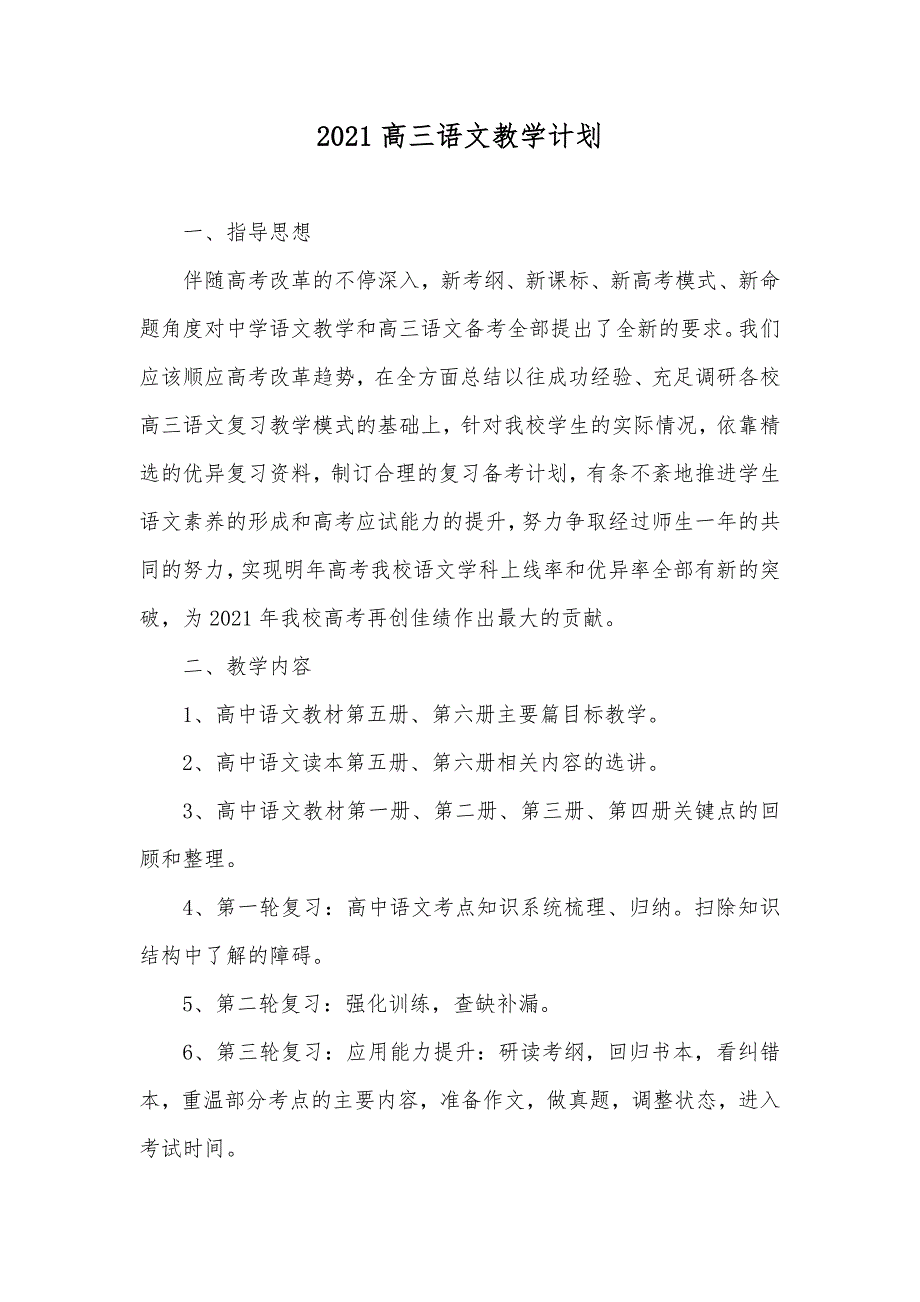 2021高三语文教学计划
一、指导思想
伴随高考改革的不停深入，新考纲、新课标、新高考模式、新命
题角度对中学语文教学和高三语文备考全部提出了全新的要求。我们
应该顺应高考改革趋势，在全方面总结以往成功经验、充足调研各校
高三语文复习教学模式的基础上，针对我校学生的实际情况，依靠精
选的优异复习资料，制订合理的复习备考计划，有条不紊地推进学生
语文素养的形成和高考应试能力的提升，努力争取经过师生一年的共
同的努力，实现明年高考我校语文学科上线率和优异率全部有新的突
破，为2021年我校高考再创佳绩作出最大的贡献。
二、教学内容
1、高中语文教材第五册、第六册主要篇目标教学。
2、高中语文读本第五册、第六册相关内容的选讲。
3、高中语文教材第一册、第二册、第三册、第四册关键点的回
顾和整理。
4、第一轮复习：高中语文考点知识系统梳理、归纳。扫除知识
结构中了解的障碍。
5、第二轮复习：强化训练，查缺补漏。
6、第三轮复习：应用能力提升：研读考纲，回归书本，看纠错
本，重温部分考点的主要内容，准备作文，做真题，调整状态，进入
考试时间。